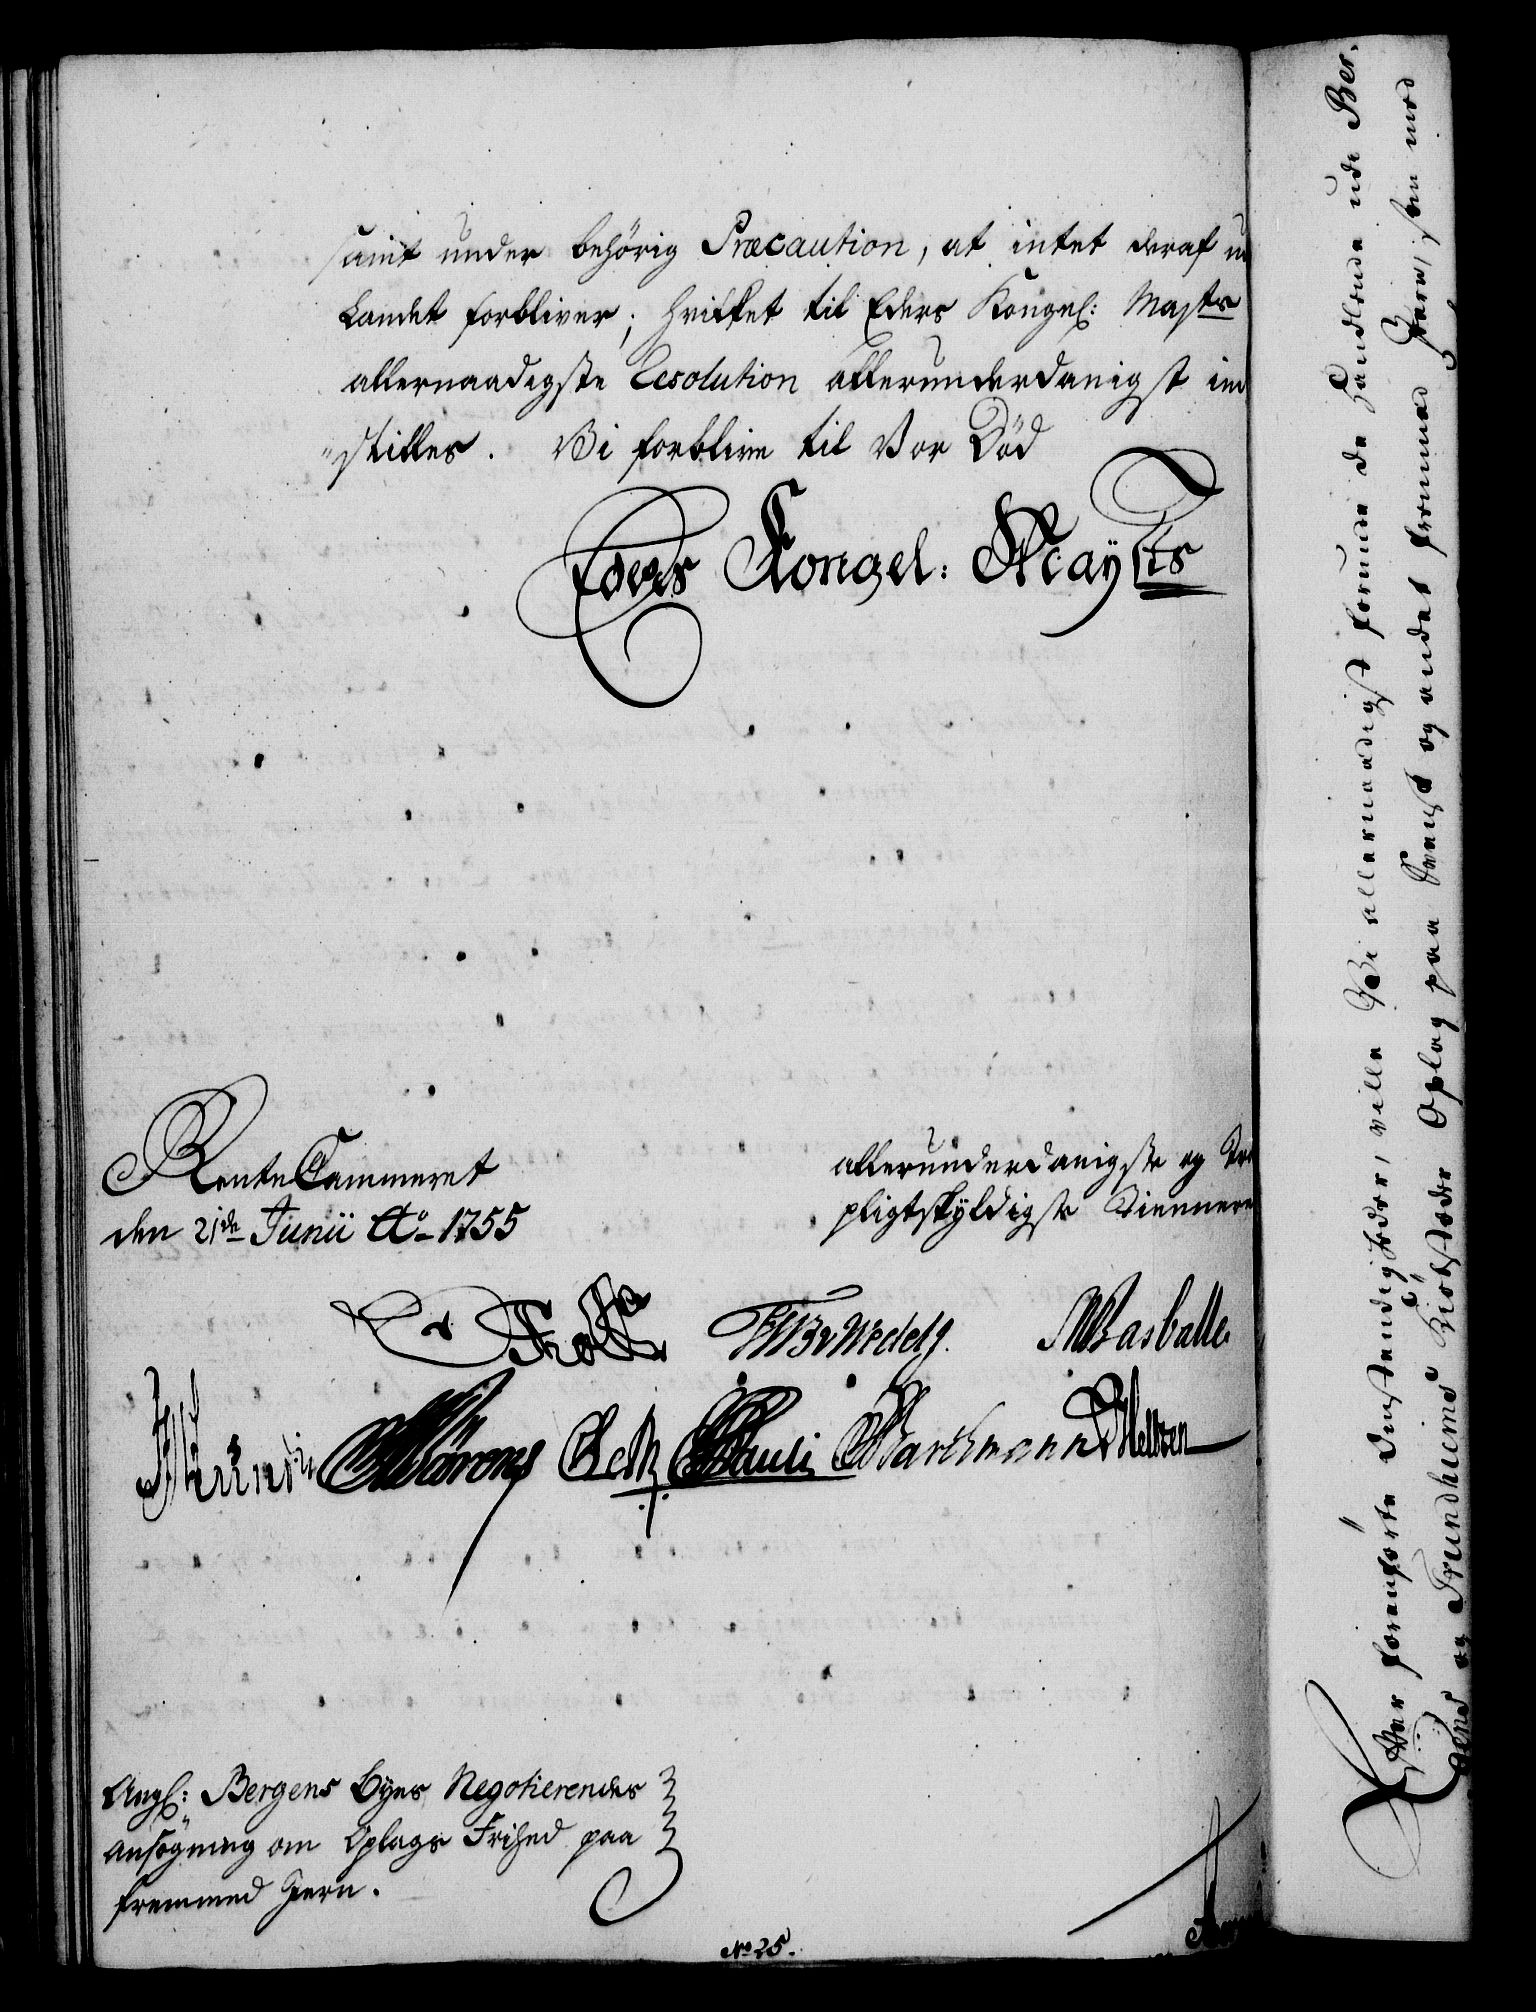 samt under behörig Præcaution, at intet deraf u
Landet forbliver; hvilket til Eders Kongel: Maj.ts
allernaadigste Resolution allerunderdanigst ind
"stilles. Vi forblive til Vor Död
Eders Kongel: Mayts
RenteCammeret
den 21de Junii Ao 1755
allerunderdanigste og Tro
pligtskyldigste Tiennere
Holst
Wedel
MBasballe
Pauli
Barthmann
Meltzer
Angl: Bergens Byes Negotierendes
ansögning om Oplags Frihed paa
fremmed Jern.
No 25.
Over foranförte Omstændigheder, ville Vi allernaadigst forunde de Handlende udi Ber-
gens og Trundhiems Kiöbstæder Oplag paa Svensk og andet fremmed Jern, som med